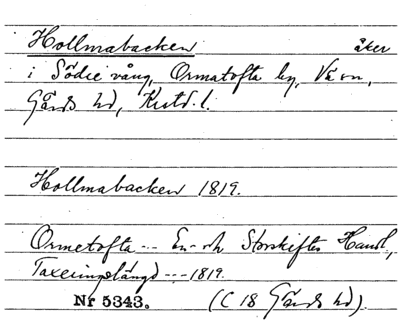 Hollmabacken åker
i Södre vång, Ormatofta by, Vä sn,
Gärds hd, Kristd. l.
Hollmabacken 1819.
Ormetofta --- En- och Storskiftes Handl.,
Taxeringslängd --- 1819.
Nr 5343. (C 18 Gärds hd).